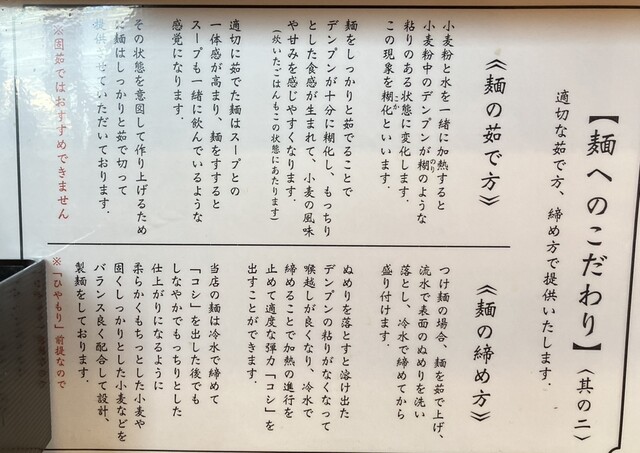 【麺へのこだわり】〈其の二〉
適切な茹で方、締め方で提供いたします.
《麺の茹で方》
小麦粉と水を一緒に加熱すると
小麦粉中のデンプンが糊(のり)のような
粘りのある状態に変化します.
この現象を糊化(こか)といいます.
麺をしっかりと茹でることで
デンプンが十分に糊化し、もっちり
とした食感が生まれて、小麦の風味
や甘みを感じやすくなります.
(炊いたごはんもこの状態にあたります)
適切に茹でた麺はスープとの
一体感が高まり、麺をすすると
スープも一緒に飲んでいるような
感覚になります.
その状態を意図して作り上げるため
に麺はしっかりと茹で切って
提供させていただいております.
※固茹ではおすすめできません
《麺の締め方》
つけ麺の場合、麺を茹で上げ、
流水で表面のぬめりを洗い
落とし、冷水で締めてから
盛り付けます.
ぬめりを落とすと溶け出た
デンプンの粘りがなくなって
喉越しが良くなり、冷水で
締めることで加熱の進行を
止めて適度な弾力「コシ」を
出すことができます.
当店の麺は冷水で締めて
「コシ」を出した後でも
しなやかでもっちりとした
仕上がりになるように
柔らかくもちっとした小麦や
固くしっかりとした小麦などを
バランス良く配合して設計、
製麺をしております.
※「ひやもり」前提なので